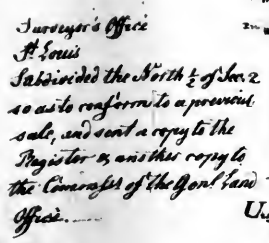 Surveyor's Office
St Louis
Subdivided the North ½ of Sec. 2
so as to conform to a previous
sale, and sent a copy to the
Register & another copy to
the Commr of the Genl Land
Office.
U